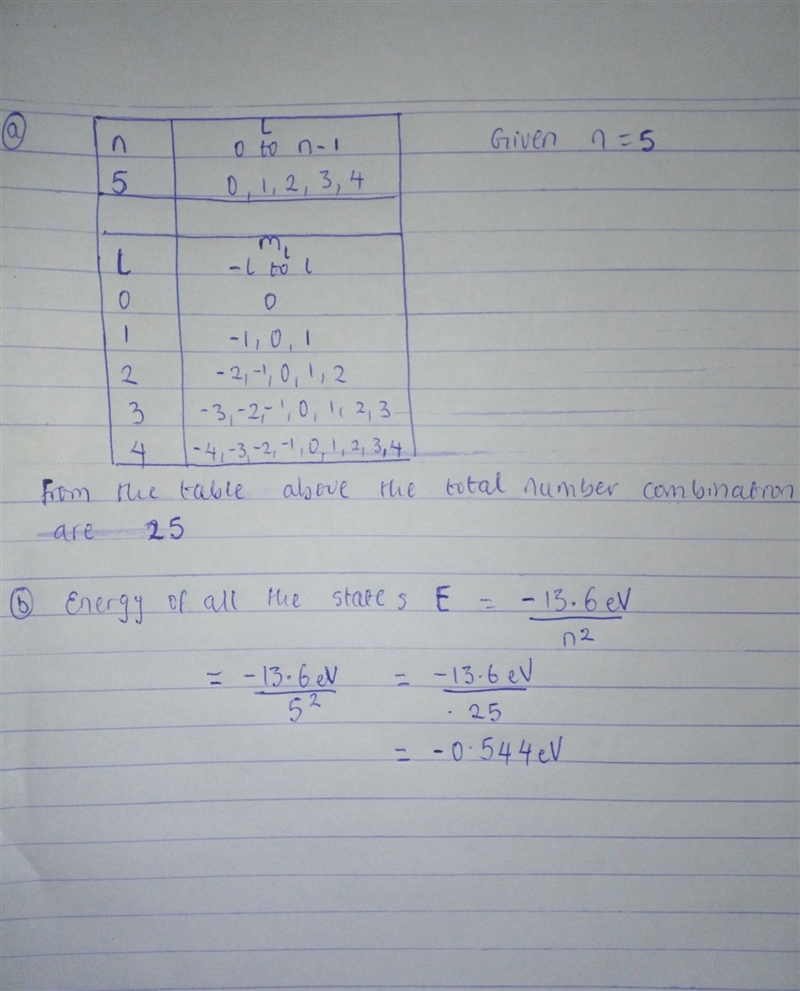 ⓐ n L 0 to n-1 Given n = 5
5 0, 1, 2, 3, 4
L mₗ -l to l
0 0
1 -1, 0, 1
2 -2, -1, 0, 1, 2
3 -3, -2, -1, 0, 1, 2, 3
4 -4, -3, -2, -1, 0, 1, 2, 3, 4
From the table above the total number combination
are 25
ⓑ Energy of all the states E = -13.6 eV / n²
= -13.6 eV / 5² = -13.6 eV / 25
= -0.544 eV